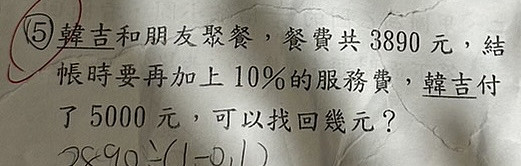 (5) 韓吉和朋友聚餐，餐費共 3890 元，結
帳時要再加上 10%的服務費，韓吉付
了 5000 元，可以找回幾元？
3890÷(1-0.1)